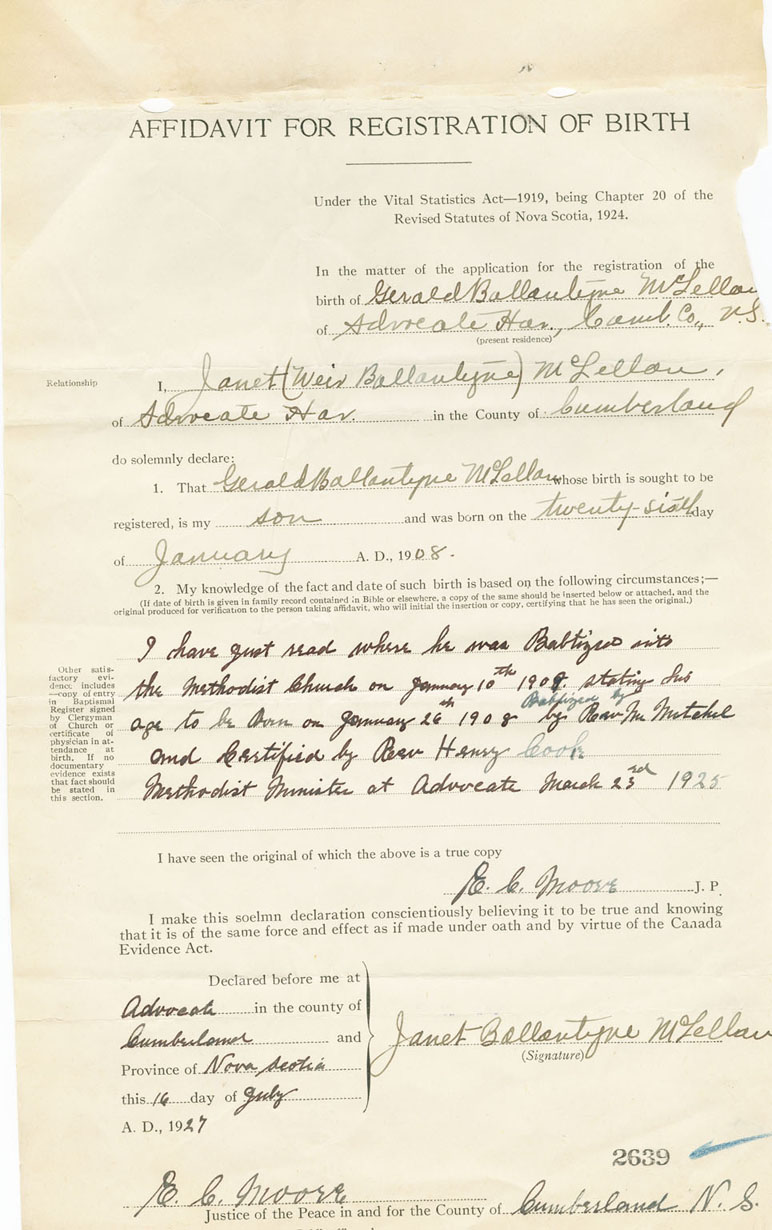 AFFIDAVIT FOR REGISTRATION OF BIRTH
Under the Vital Statistics Act—1919, being Chapter 20 of the
Revised Statutes of Nova Scotia, 1924.
In the matter of the application for the registration of the
birth of Gerald Ballantyne McLellan
of Advocate Har., Cumb. Co., N.S.
(present residence)
Relationship
I, Janet (Weir Ballantyne) McLellan,
of Advocate Har. in the County of Cumberland
do solemnly declare:
1. That Gerald Ballantyne McLellan whose birth is sought to be
registered, is my son and was born on the twenty-sixth day
of January A. D., 1908.
2. My knowledge of the fact and date of such birth is based on the following circumstances;—
(If date of birth is given in family record contained in Bible or elsewhere, a copy of the same should be inserted below or attached, and the
original produced for verification to the person taking affidavit, who will initial the insertion or copy, certifying that he has seen the original.)
Other satis-
factory evi-
dence includes
—copy of entry
in Baptismal
Register signed
by Clergyman
of Church or
certificate of
physician in at-
tendance at
birth. If no
documentary
evidence exists
that fact should
be stated in
this section.
I have just read where he was Babtized into
the Methodist Church on January 10th 1909 stating his
Babtized by
age to be Born on January 26th 1908 by Rev Mc Mitchel
and Certified by Rev Henry Cook
Methodist Minister at Advocate March 23rd 1925
I have seen the original of which the above is a true copy
E. C. Moore J. P.
I make this soelmn declaration conscientiously believing it to be true and knowing
that it is of the same force and effect as if made under oath and by virtue of the Canada
Evidence Act.
Declared before me at
Advocate in the county of
Cumberland and
Province of Nova Scotia
this 16 day of July
A. D., 1927
Janet Ballantyne McLellan
(Signature)
2639
E. C. Moore
Justice of the Peace in and for the County of Cumberland N. S.